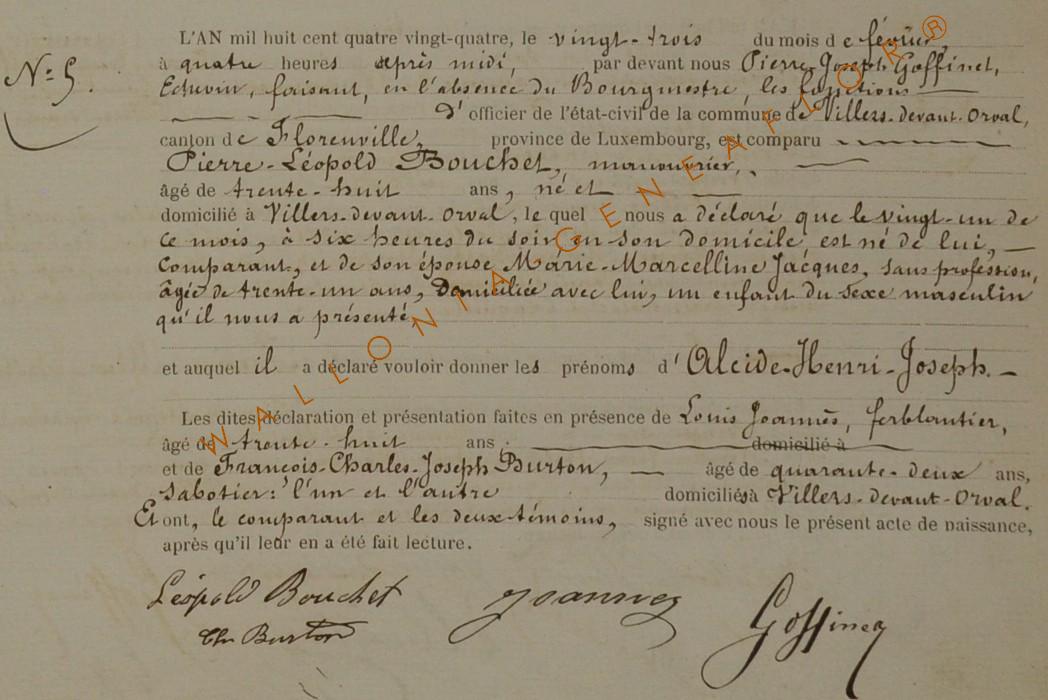 N° 5.
L'AN mil huit cent quatre vingt-quatre, le vingt-trois du mois de février,
à quatre heures après midi, par devant nous Pierre-Joseph Goffinet,
Echevin, faisant, en l'absence du Bourgmestre, les fonctions
d'officier de l'état-civil de la commune de Villers-devant-Orval,
canton de Florenville, province de Luxembourg, est comparu
Pierre-Léopold Bouchet, manouvrier,
âgé de trente-huit ans, né et
domicilié à Villers-devant-Orval, lequel nous a déclaré que le vingt-un de
ce mois, à six heures du soir en son domicile, est né de lui,
Comparant, et de son épouse Marie-Marcelline Jacques, sans profession,
âgée de trente-un ans, Domiciliée avec lui, un enfant du sexe masculin
qu'il nous a présenté
et auquel il a déclaré vouloir donner les prénoms d'Alcide-Henri-Joseph.
Les dites déclaration et présentation faites en présence de Louis Joannès, ferblantier,
âgé de trente-huit ans domicilié à
et de François-Charles-Joseph Burton, âgé de quarante-deux ans,
Sabotier: l'un et l'autre domiciliés à Villers-devant-Orval.
Et ont, le comparant et les deux témoins, signé avec nous le présent acte de naissance,
après qu'il leur en a été fait lecture.
Léopold Bouchet Joannes Goffinet
Ch Burton
WALLONIA GENEAFLOR ®